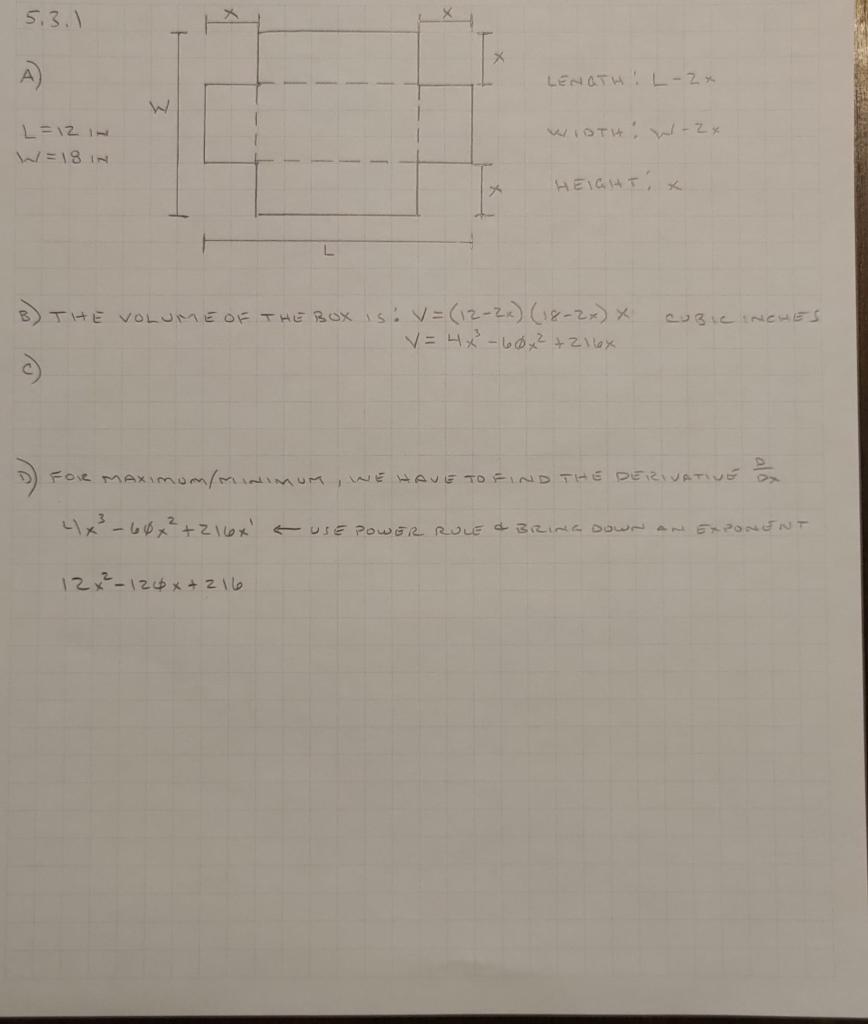 5.3.1
X
X
A)
X
LENGTH: L-2x
W
L=12 IN
WIDTH: W-2x
W=18 IN
X
HEIGHT: x
L
B) THE VOLUME OF THE BOX IS: V=(12-2x)(18-2x) X CUBIC INCHES
V= 4x³-60x²+216x
C)
D) FOR MAXIMUM/MINIMUM, WE HAVE TO FIND THE DERIVATIVE D/Dx
4x³-60x²+216x¹ ← USE POWER RULE & BRING DOWN AN EXPONENT
12x²-120x+216